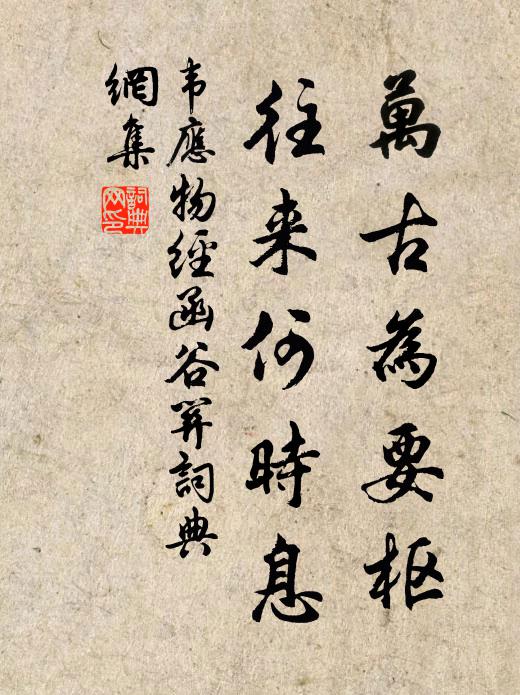 萬古為要枢
往来何時息
韦應物經函谷関詞典
網集
詞典網印